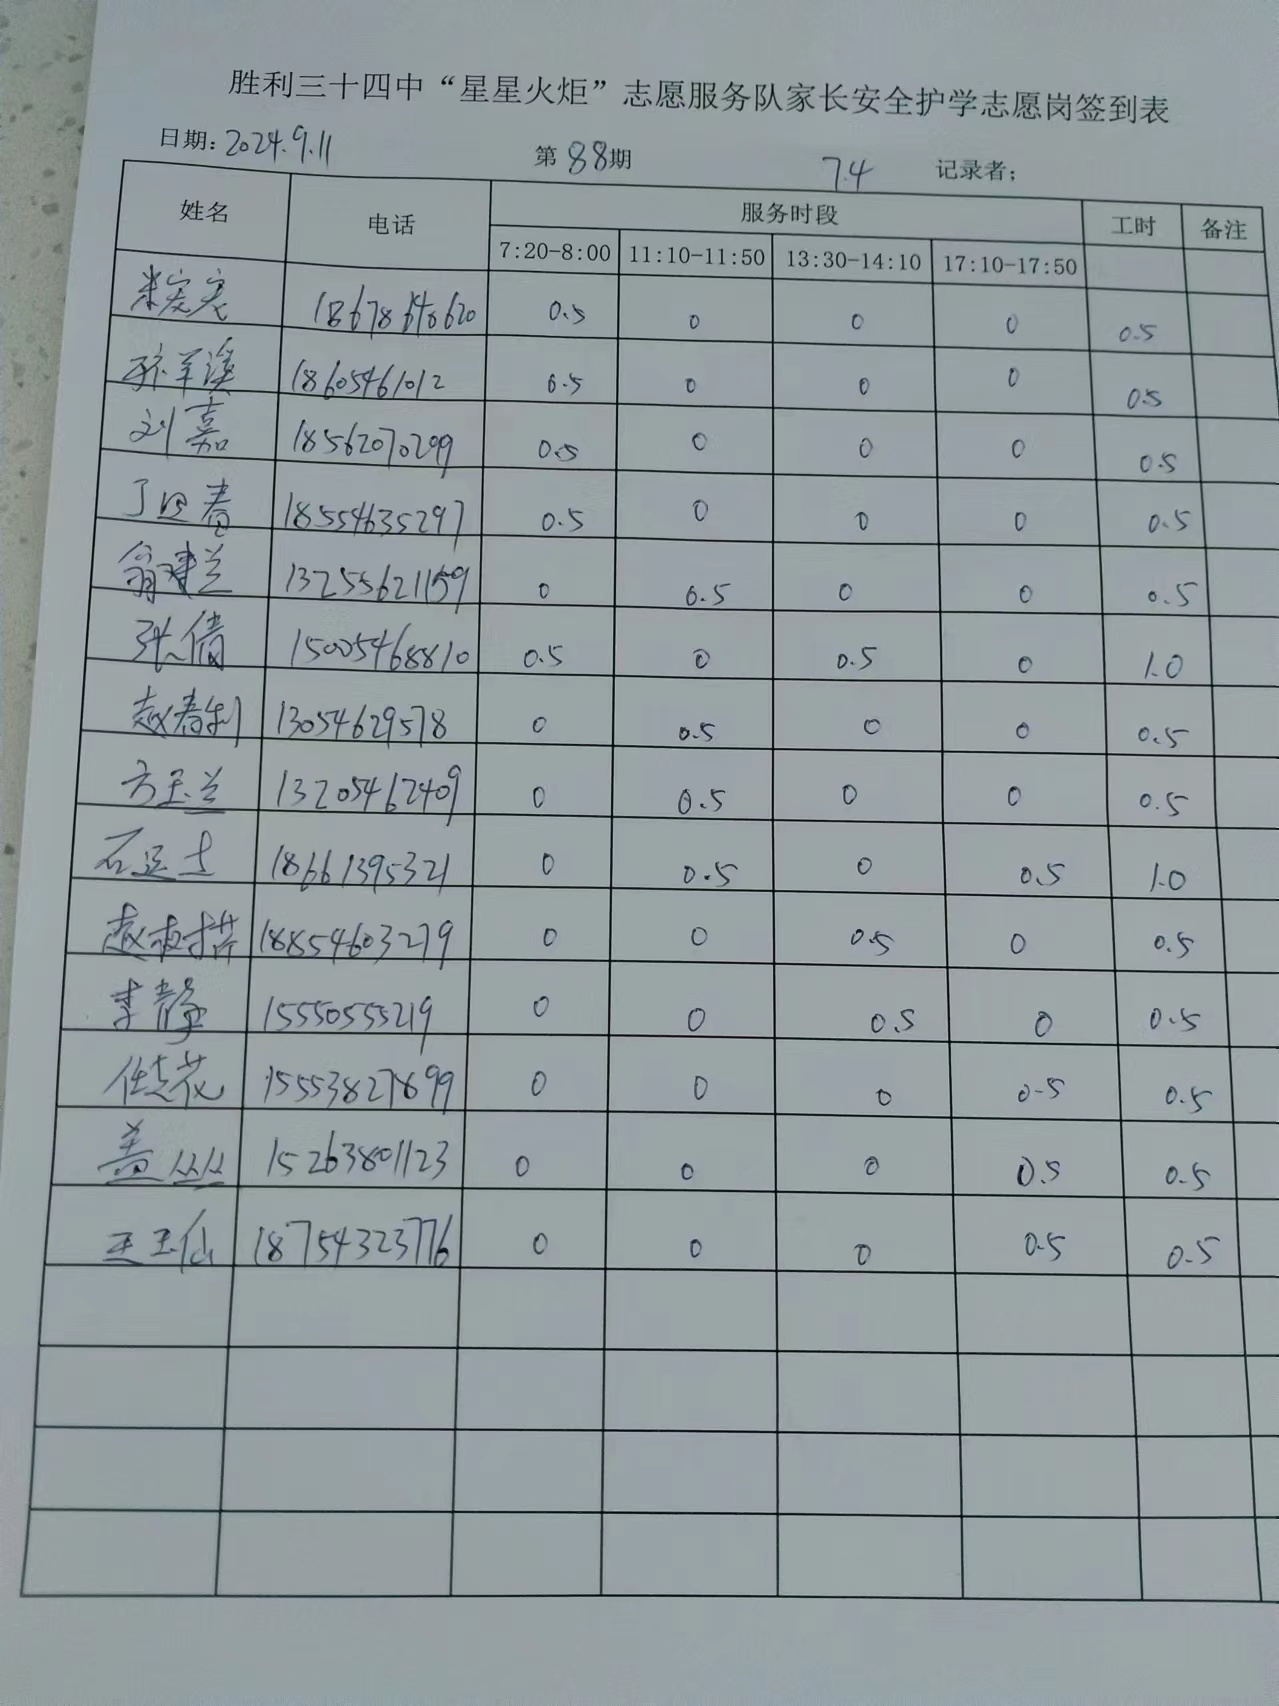 胜利三十四中“星星火炬”志愿服务队家长安全护学志愿岗签到表
日期: 2024.9.11 第 88 期 7.4 记录者;
姓名 电话 服务时段 工时 备注
7:20-8:00 11:10-11:50 13:30-14:10 17:10-17:50
0.5 0 0 0 0.5
18605461012 0.5 0 0 0 0.5
刘嘉 18562070299 0.5 0 0 0 0.5
18554635297 0.5 0 0 0 0.5
翁建兰 13255621159 0 0.5 0 0 0.5
张倩 15005468810 0.5 0 0.5 0 1.0
赵春利 13054629578 0 0.5 0 0 0.5
方玉兰 13205462409 0 0.5 0 0 0.5
18661395321 0 0.5 0 0.5 1.0
18854603279 0 0 0.5 0 0.5
李静 15550555219 0 0 0.5 0 0.5
15553827899 0 0 0 0.5 0.5
盖丛丛 15263801123 0 0 0 0.5 0.5
王玉仙 18754323776 0 0 0 0.5 0.5